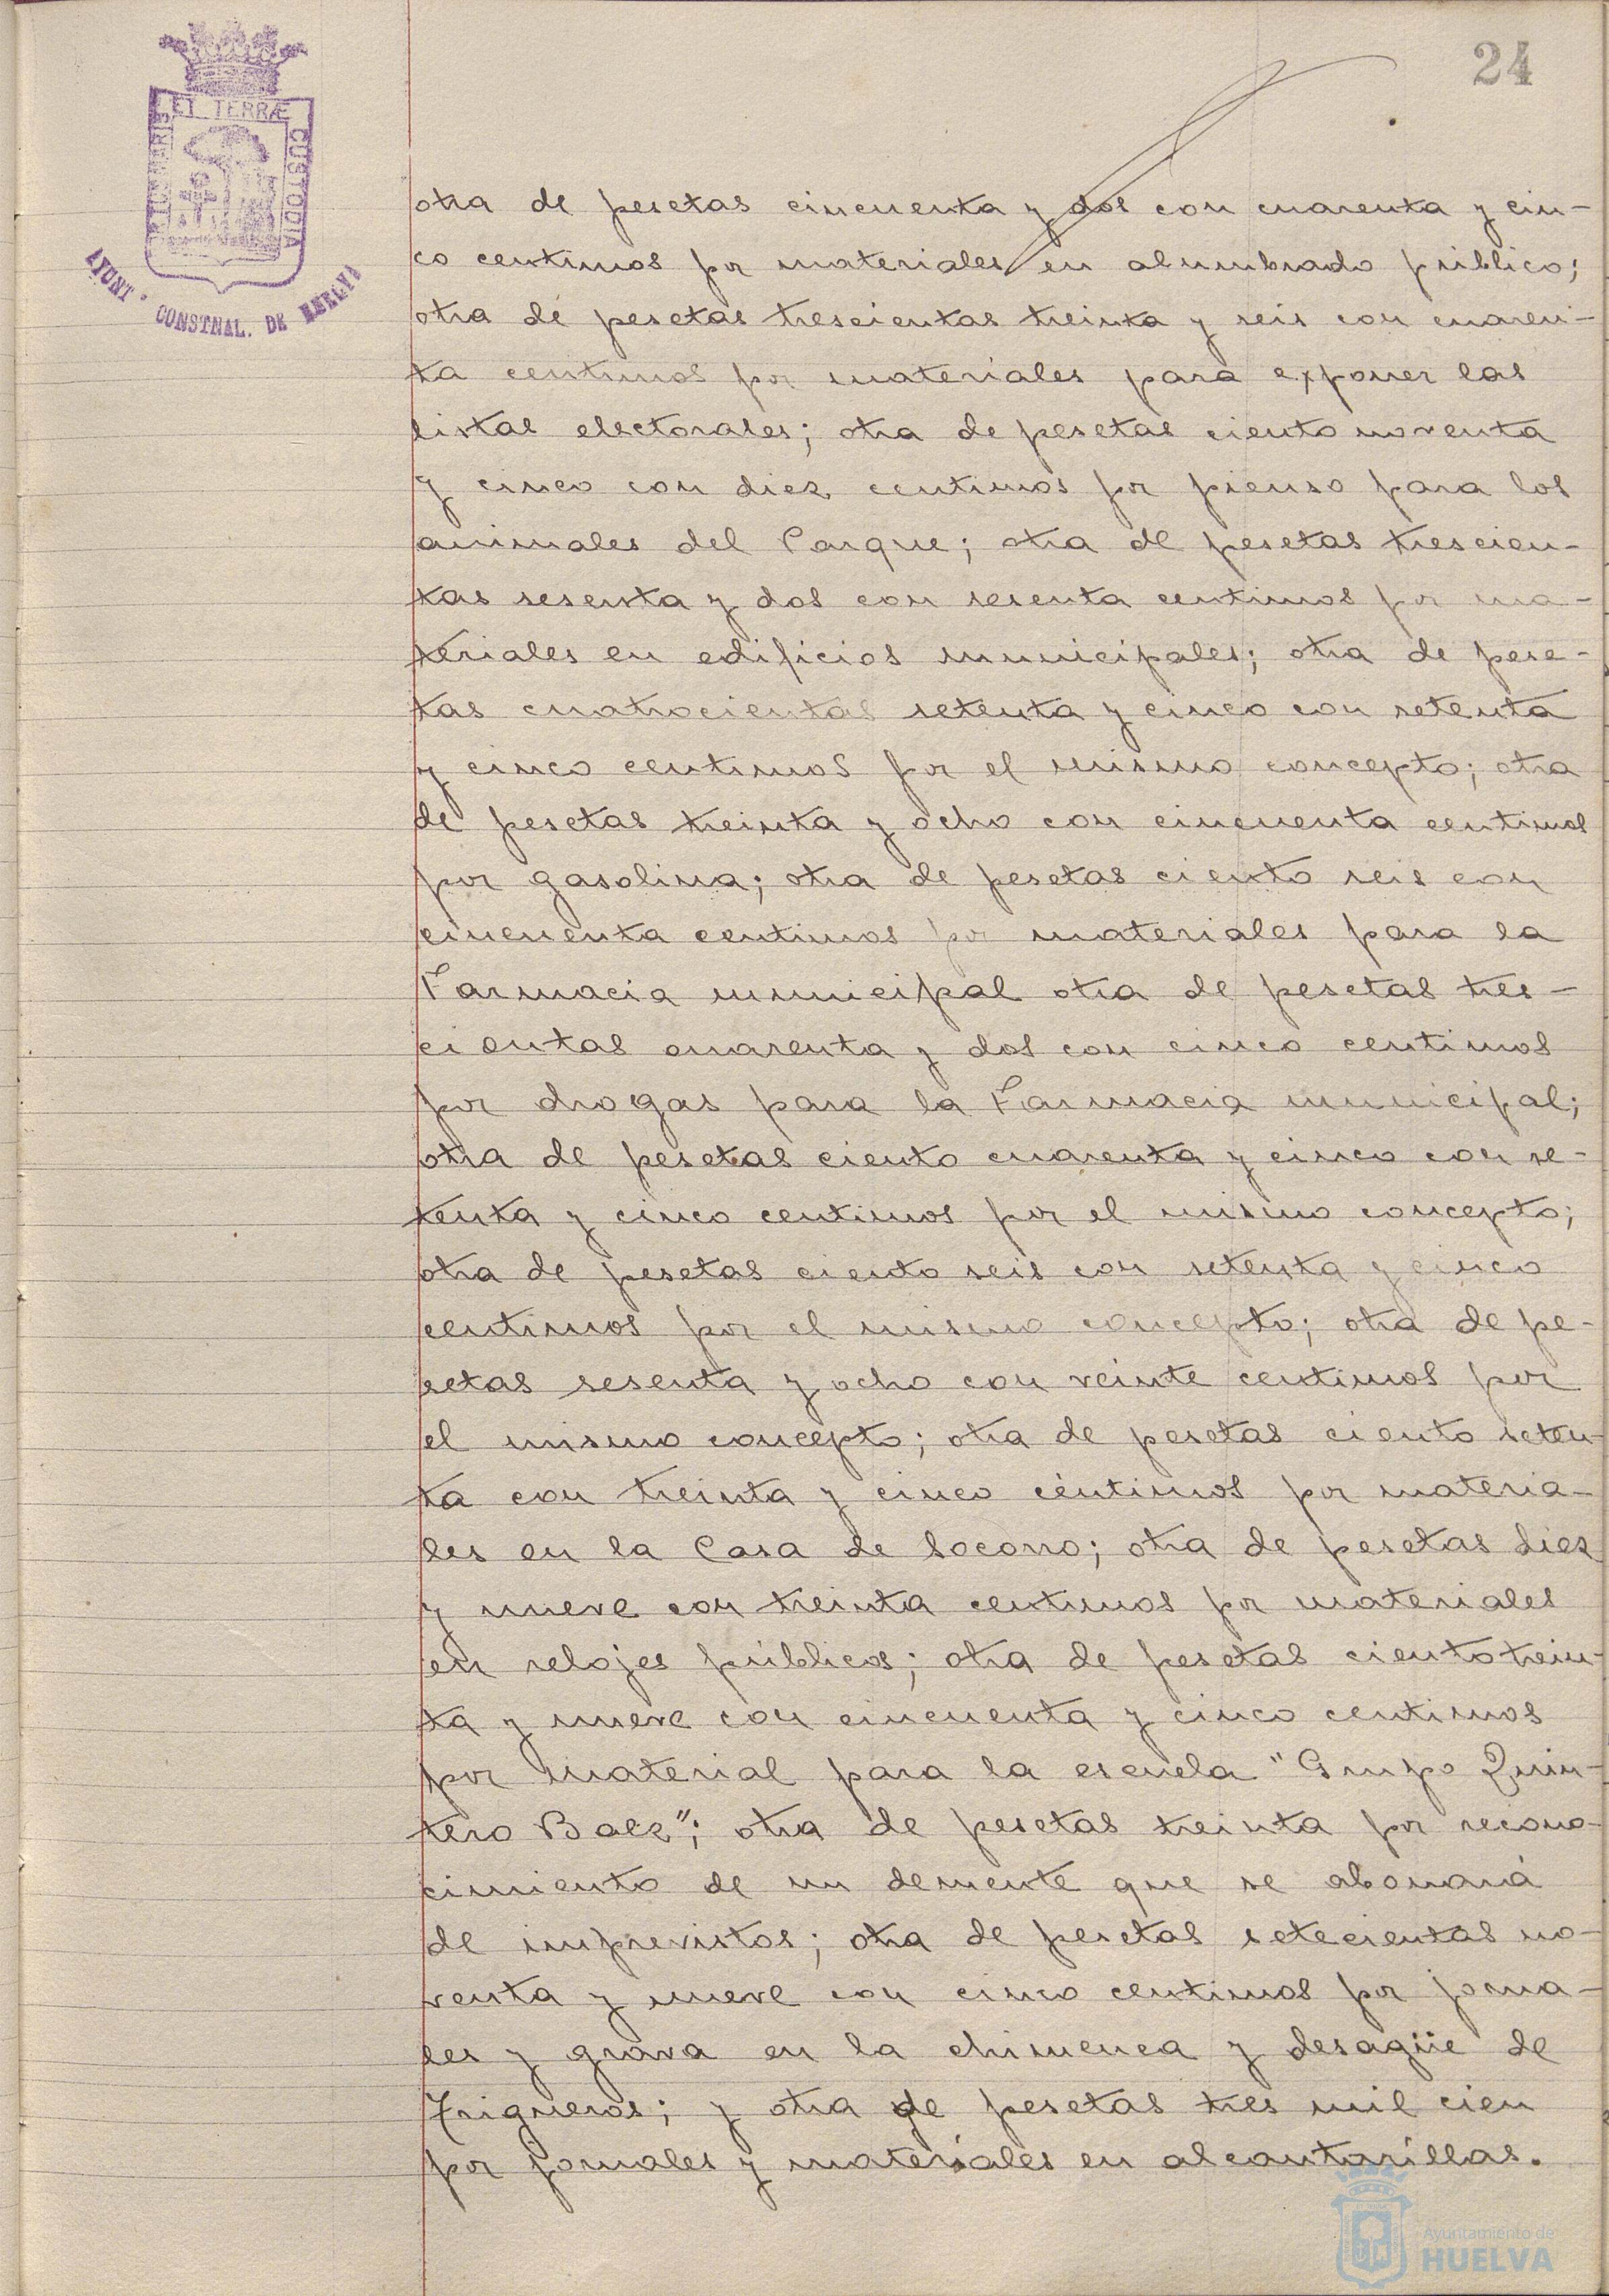 24
PORTUS MARIS
ET TERRÆ
CUSTODIA
AYUNTº CONSTNAL. DE HUELVA
otra de pesetas cincuenta y dos con cuarenta y cin-
co centimos por materiales en alumbrado público;
otra de pesetas trescientas treinta y seis con cuaren-
ta centimos por materiales para exponer las
listas electorales; otra de pesetas ciento noventa
y cinco con diez centimos por pienso para los
animales del Parque; otra de pesetas trescien-
tas sesenta y dos con sesenta centimos por ma-
teriales en edificios municipales; otra de pese-
tas cuatrocientas setenta y cinco con setenta
y cinco centimos por el mismo concepto; otra
de pesetas treinta y ocho con cincuenta centimos
por gasolina; otra de pesetas ciento seis con
cincuenta centimos por materiales para la
Farmacia municipal otra de pesetas tres-
cientas cuarenta y dos con cinco centimos
por drogas para la Farmacia municipal;
otra de pesetas ciento cuarenta y cinco con se-
tenta y cinco centimos por el mismo concepto;
otra de pesetas ciento seis con setenta y cinco
centimos por el mismo concepto; otra de pe-
setas sesenta y ocho con veinte centimos por
el mismo concepto; otra de pesetas ciento seten-
ta con treinta y cinco céntimos por materia-
les en la Casa de Socorro; otra de pesetas diez
y nueve con treinta centimos por materiales
en relojes públicos; otra de pesetas ciento trein-
ta y nueve con cincuenta y cinco centimos
por material para la escuela "Grupo Quin-
tero Baez"; otra de pesetas treinta por recono-
cimiento de un demente que se abonará
de imprevistos; otra de pesetas setecientas no-
venta y nueve con cinco centimos por jorna-
les y grava en la chimenea y desagüe de
Trigueros; y otra de pesetas tres mil cien
por jornales y materiales en alcantarillas.
Ayuntamiento de
HUELVA